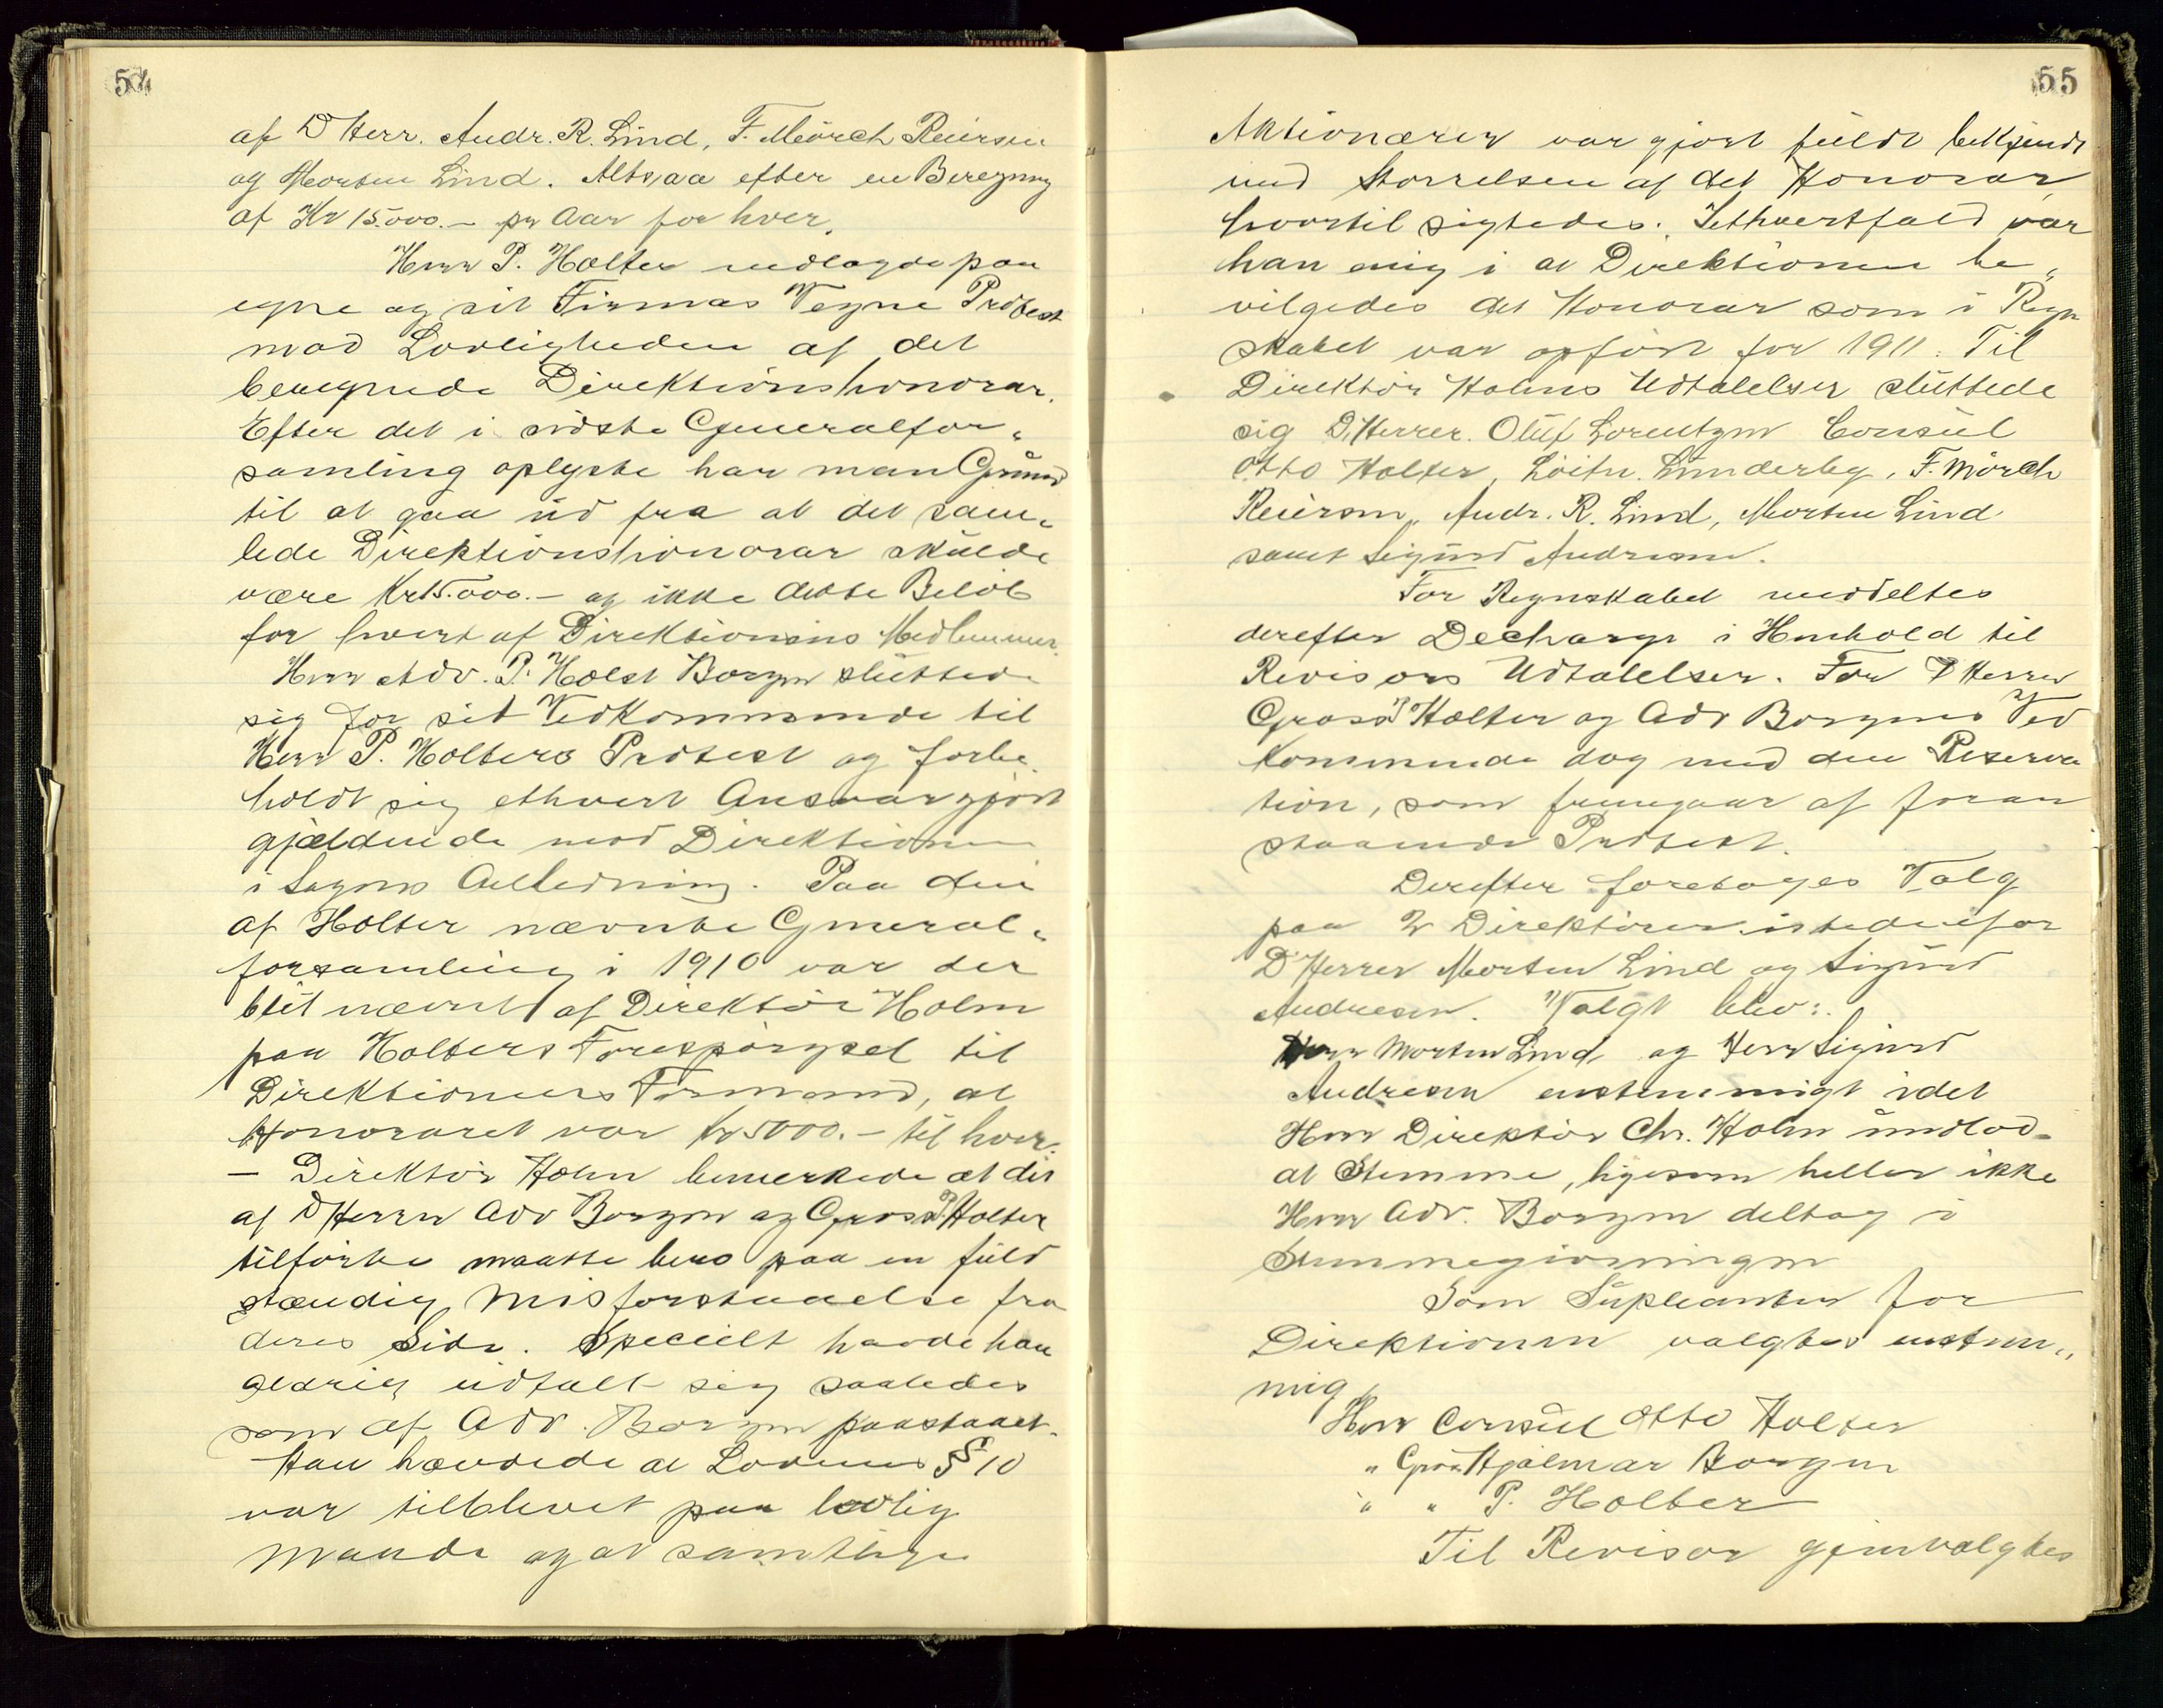 54
af D'Herr. Andr. R. Lind, F. Mörch Reiersen
og Morten Lind. Altsaa efter en Beregning
af Kr 15.000.- pr Aar for hver.
Herr P. Holter nedlagde paa
egne og sit Firmas Vegne Protest
mod Lovligheden af det
beregnede Direktionshonorar.
Efter det i sidste Generalfor-
samling oplyste har man Grund
til at gaa ud fra at det sam-
lede Direktionshonorar skulde
være Kr 15.000.- og ikke dette Beløb
for hvert af Direktionens Medlemmer.
Herr Adv. P. Holst Borgen sluttede
sig for sit Vedkommende til
Herr P. Holters Protest og forbe-
holdt sig ethvert Ansvar gjort
gjældende mod Direktionen
i Sagens Anledning. Paa den
af Holter nævnte General-
forsamling i 1910 var der
blit nævnt af Direktör Holm
paa Holters Forespörgsel til
Direktionens Formand, at
Honoraret var Kr 5000.- til hver.
- Direktör Holm bemerkede at det
af D'Herrer Adv Borgen og Gross. P. Holter
tilförte maatte bero paa en fuld
stændig Misforstaaelse fra
deres Side. Specielt havde han
aldrig udtalt sig saaledes
som af Adv. Borgen paastaaet.
Han hævdede at Lovenes § 10
var tilblevet paa lovlig
Maade og at samtlige
55
Aktionærer var gjort fuldt bekjendt
med Storrelsen af det Honorar
hvortil sigtedes. Iethvertfald var
han enig i at Direktionen be-
vilgedes det Honorar som i Regn
skabet var opfört for 1911. Til
Direktör Holms Udtalelser sluttede
sig D'Herrer. Oluf Lorentzen Consul
Otto Holter, Löitn. Lunderby, F. Mörch
Reiersen, Andr. R. Lind, Morten Lind
samt Sigurd Andresen.
For Regnskabet meddeltes
derefter Decharge i Henhold til
Revisors Udtalelser. For D'Herrer
Gross. P. Holter og Adv Borgens Ved
kommende dog med den Reserva
tion, som fremgaar af foran
staaende Protest.
Derefter foretoges Valg
paa 2 Direktörer istedenfor
D'Herrer Morten Lind og Sigurd
Andresen. Valgt blev:
Herr Morten Lind og Herr Sigurd
Andresen enstemmigt idet
Herr Direktör Chr. Holm undlod
at Stemme, ligesom heller ikke
Herr Adv. Borgen deltog i
Stemmegivningen
Som Supleanter for
Direktionen valgtes enstem-
mig
Herr Consul Otto Holter
" Gross. Hjalmar Borgen
" " P. Holter
Til Revisor gjenvalgtes